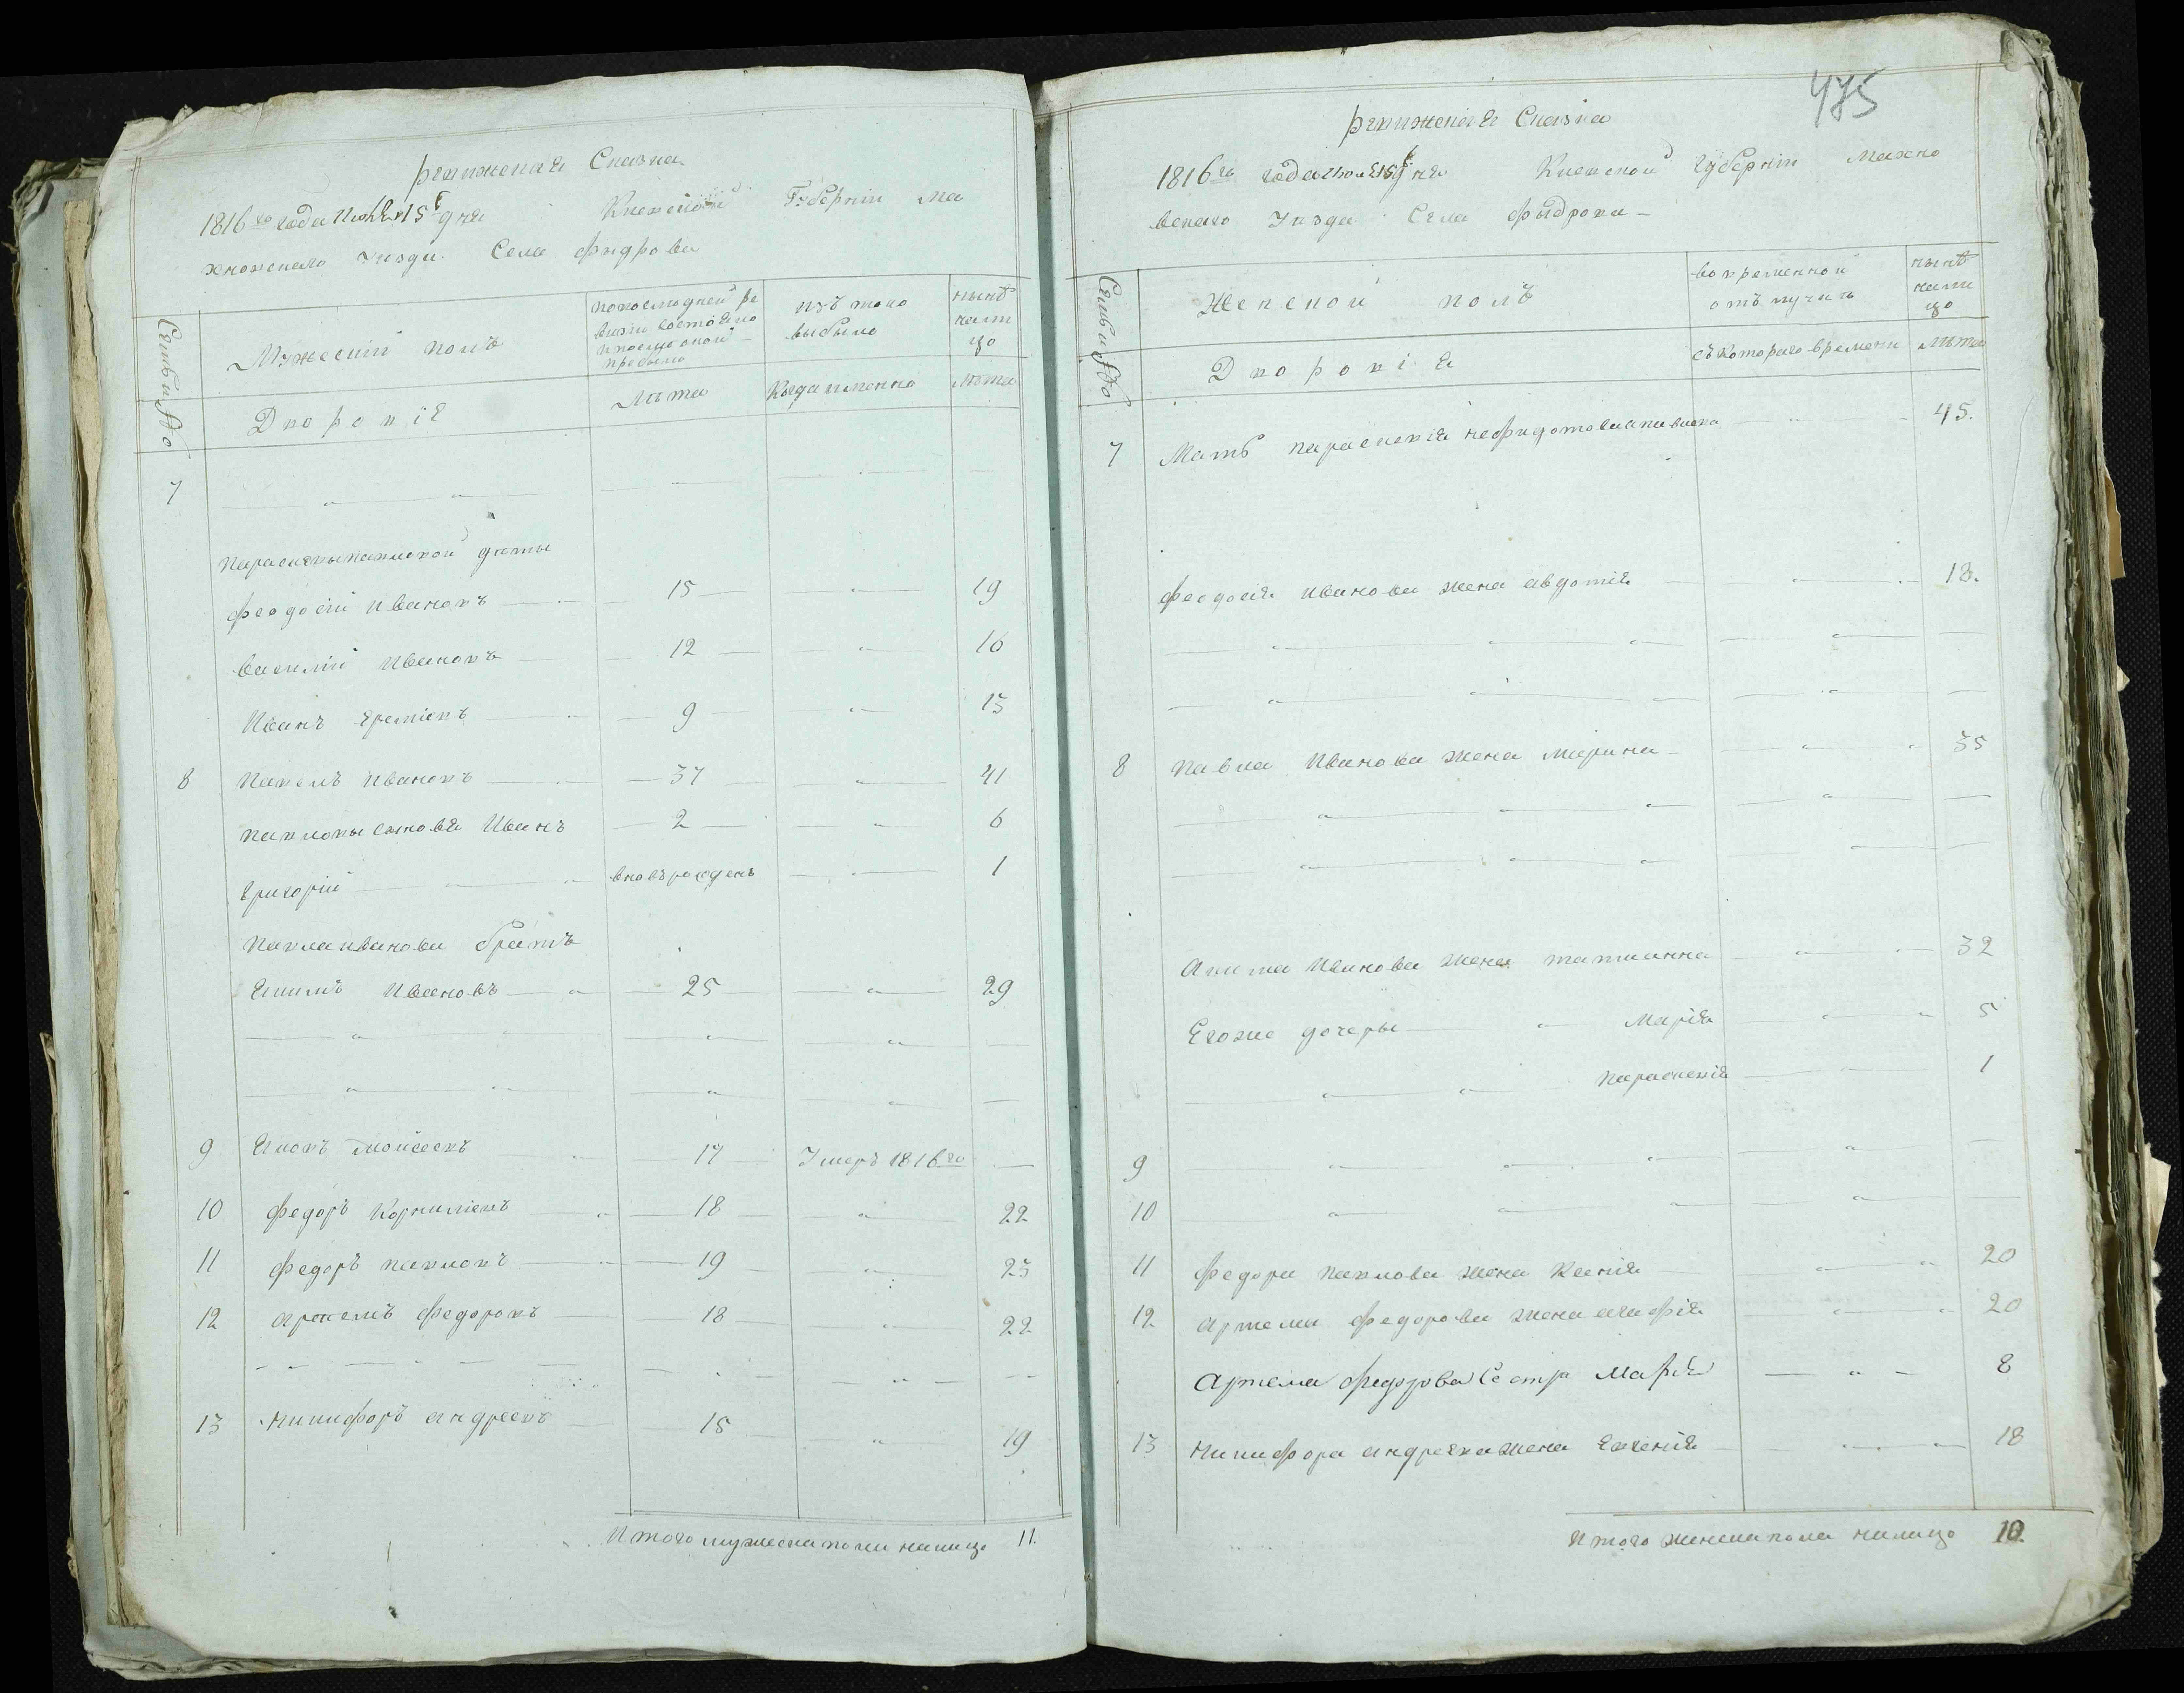 Ревижская Сказка
1816го года Июля 15 дня Киевской Губернии Ма
хновскаго уезда Села Фидрова
Семьи №
Мужеский полъ
попоследней ре
визии состояло
и после оной
прибыло
изъ того
выбыло
ныне
нали
цо
Дворовіе
Лета
Когда именно
Лета
7
Параскевы Павловой дети
Феодосій Ивановъ 15 19
Василій Ивановъ 12 16
Иванъ Еремеевъ 9 13
8 Павелъ Ивановъ 37 41
Павловы сыновья Иванъ 2 6
Григорій вновь рожденъ 1
Павла Иванова братъ
Ивановъ 25 29
9 Моисеевъ 17 Умеръ 1816го
10 Федоръ Корнилиевъ 18 22
11 Федоръ Павловъ 19 23
12 Артемъ Федоровъ 18 22
13 Никифоръ Андреевъ 15 19
Итого мужеска пола налицо 11.
475
Ревижская Сказка
1816го года Июля 15 дня Киевской Губерніи Махно
вскаго уезда Села Фыдрова
Семьи №
Женской полъ
во временной
отълучкъ
ныне
нали
цо
Дворовія
съ котораго времени
лета
7 Мать Параскевія 45.
Феодосія Иванова жена Авдотія 18.
8 Павла Иванова жена Марина 35
Иванова жена Татианна 32
Егоже дочеры Марія 5
Параскевія 1
9
10
11 Федора Павлова жена Ксенія 20
12 Артема Федорова жена Агафія 20
Артема Федорова Сестра Марія 8
13 Никифора Андреева жена Евгенія 18
Итого женска пола налицо 10.